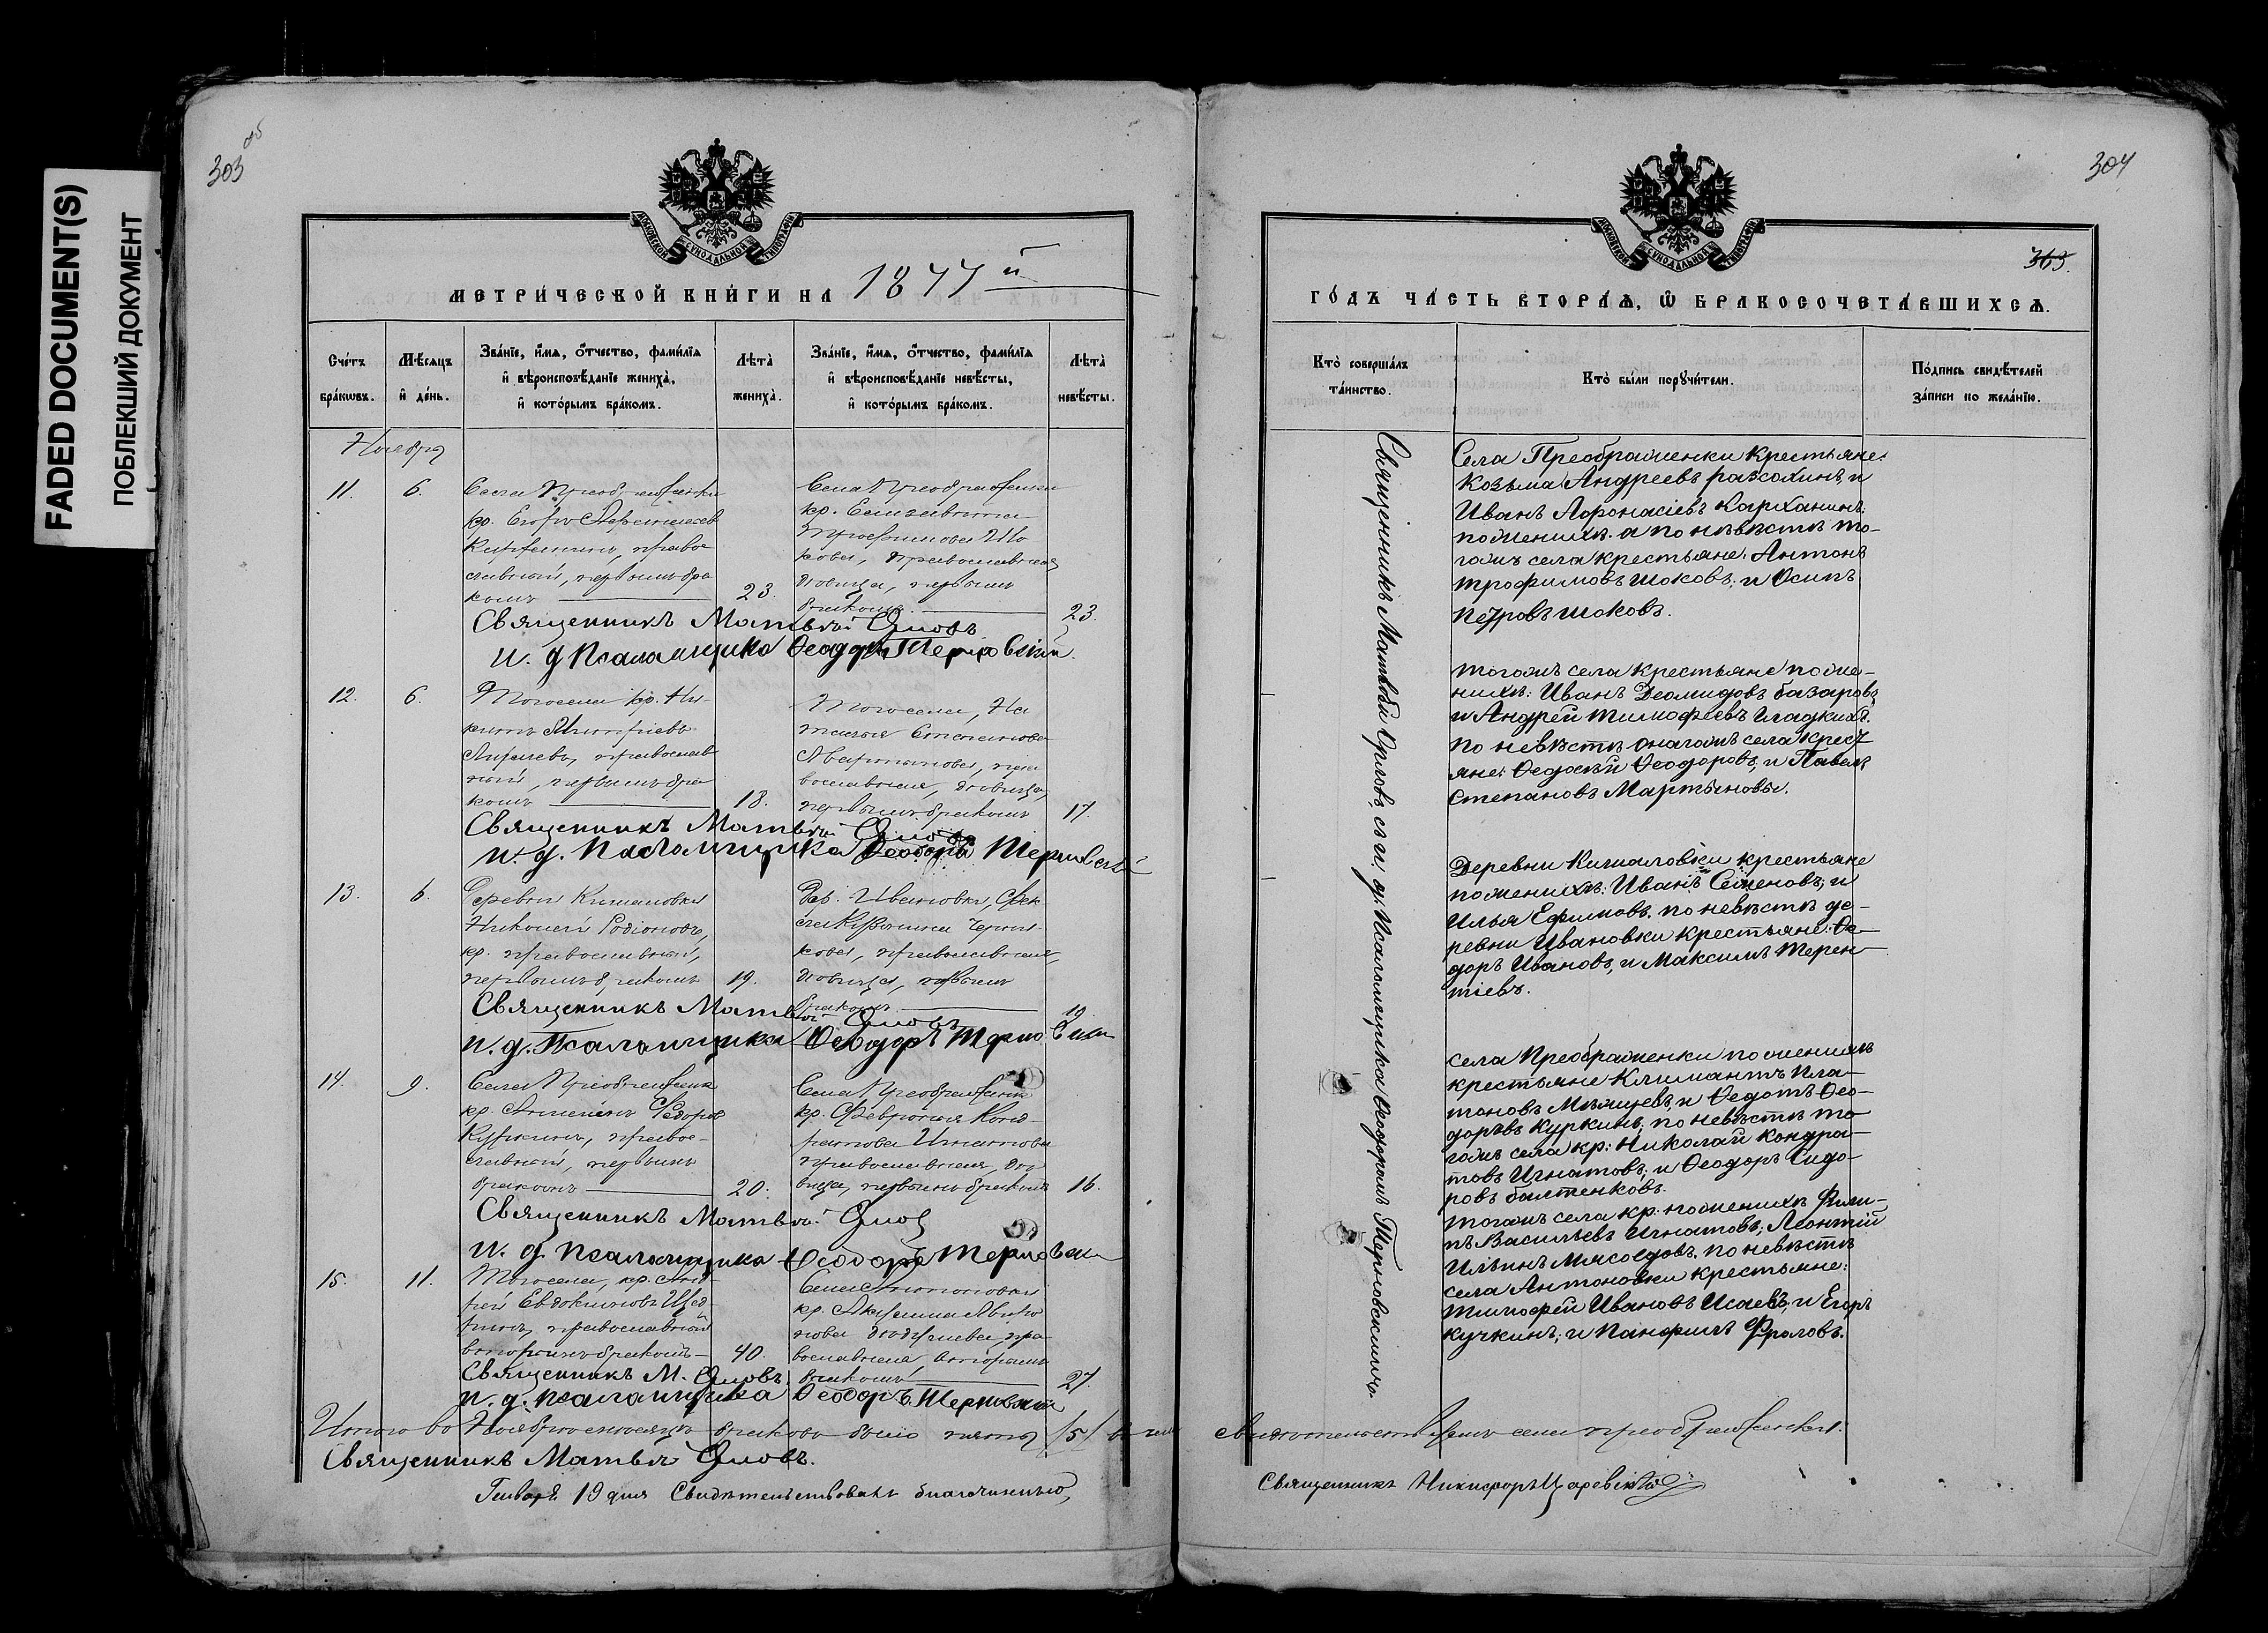 FADED DOCUMENT(S)
ПОБЛЕКШИЙ ДОКУМЕНТ
303 об
МОСКОВСКОЙ СѴНОДАЛЬНОЙ ТИПОГРАФІИ
МЕТРИ́ЧЕСКОЙ КНИ́ГИ НА 1877й
Сче́тъ бра́кѡвъ.
Мѣ́сяцъ и҆ де́нь.
Зва́нїе, и҆́мѧ, ѻ҆́тчество, фами́лїѧ
и҆ вѣроисповѣ́данїе жениха̀,
и҆ кото́рымъ бра́комъ.
Лѣ́та жениха̀.
Зва́нїе, и҆́мѧ, ѻ҆́тчество, фами́лїѧ
и҆ вѣроисповѣ́данїе невѣ́сты,
и҆ кото́рымъ бра́комъ.
Лѣ́та невѣ́сты.
Ноября
11.
6.
Села Преображенки
кр. Егоръ
православный, первымъ бра
комъ
23.
Села Преображенки
кр. Елисавета
Трофимова Шо
кова, православная
девица, первымъ
бракомъ.
23.
Священникъ Матвѣй Орловъ
и. д Псаломщика Ѳеодоръ Терновскій.
12.
6.
Тогосела кр. Ни-
православ
ный, первымъ бра
комъ
18.
Тогосела, На
талья Степанова
Мартынова, пра
вославная, девица,
первымъ бракомъ
17.
Священникъ Матвѣй Орловъ
и. д. Псаломщика Ѳеодоръ Терновскій
13.
6.
Деревни Кишаловки
Николай Родіоновъ,
кр. православный,
первымъ бракомъ
19.
Дев. Ивановки, Фек
православная,
девица, первымъ
бракомъ
19.
Священникъ Матвѣй Орловъ
и. д. Псаломщика Ѳеодоръ Терновскій
14.
9.
Села Преображенки
кр. Федоров
Куркинъ, право-
славный, первымъ
бракомъ
20.
Села Преображенки
кр. Феврония Конд
ратова Игнатова
православная, дев
вица, первымъ бракомъ
16.
Священникъ Матвѣй Орловъ
и. д. Псаломщика Ѳеодоръ Терновскій
15.
11.
Тогосела, кр. Анд-
рей Евдокимовъ Щед
ринъ, православный
вторымъ бракомъ
40.
Села Антоновки
кр. Акулина
пра
вославная, вторымъ
бракомъ
27.
Священникъ М. Орловъ.
и. д. псаломщика Ѳеодоръ Терновскій
Итого во Ноябрѣ месяцѣ браковъ было пять /5/
Священникъ Матвѣй Орловъ.
Генваря 19 дня Свидѣтельствовалъ благочинный,
304
365.
МОСКОВСКОЙ СѴНОДАЛЬНОЙ ТИПОГРАФІИ
ГО́ДЪ ЧА́СТЬ ВТОРА́Ѧ, Ѡ҆ БРАКОСОЧЕТА́ВШИХСѦ.
Кто̀ соверша́лъ та́инство.
Кто̀ бы́ли порꙋчи́тели.
По́дпись свидѣ́телей за́писи по жела́нїю.
Священникъ Матвѣй Орловъ, съ и. д. Псаломщика Ѳеодоромъ Терновскимъ.
Села Преображенки крестьяне.
Козьма Андреевъ разсохинъ, и
Иванъ Афонасіевъ Карханинъ.
поженихѣ. а по невѣстѣ то-
гожъ села крестьяне: Антонъ
трофимовъ шоковъ; и Осипъ
петровъ шоковъ.
тогожъ села крестьяне поже-
нихѣ: Иванъ Деомидовъ базаровъ,
и Андрей тимофеевъ гладкихъ.
по невѣстѣ онагожъ села крест
яне: Ѳедосѣй Ѳеодоровъ, и Павелъ
степановъ Мартыновы.
Деревни Кишаловки крестьяне
поженихѣ: Иванъ Семеновъ; и
Илья Ефимовъ. по невѣстѣ де-
ревни Ивановки крестьяне: Ѳе-
доръ Ивановъ, и Максимъ терен
тіевъ.
села Преображенки поженихѣ
крестьяне Климантъ Пла-
тоновъ Мѣлищевъ, и Ѳедотъ Ѳео-
доръвъ Куркинъ; по невѣстѣ то
гожъ села кр: Николай кондра-
товъ Игнатовъ; и Ѳеодоръ Сидо-
ровъ балтенковъ.
тогожъ села кр. поженихѣ Фили-
пъ Васильевъ Игнатовъ; Леонтій
Ильинъ Мясоедовъ. по невѣстѣ
села Антоновки крестьяне:
тимофей Ивановъ Исаевъ, и Егоръ
кучкинъ; и Панфилъ Фроловъ.
села преображенки.
Священникъ Никифоръ Царевскій